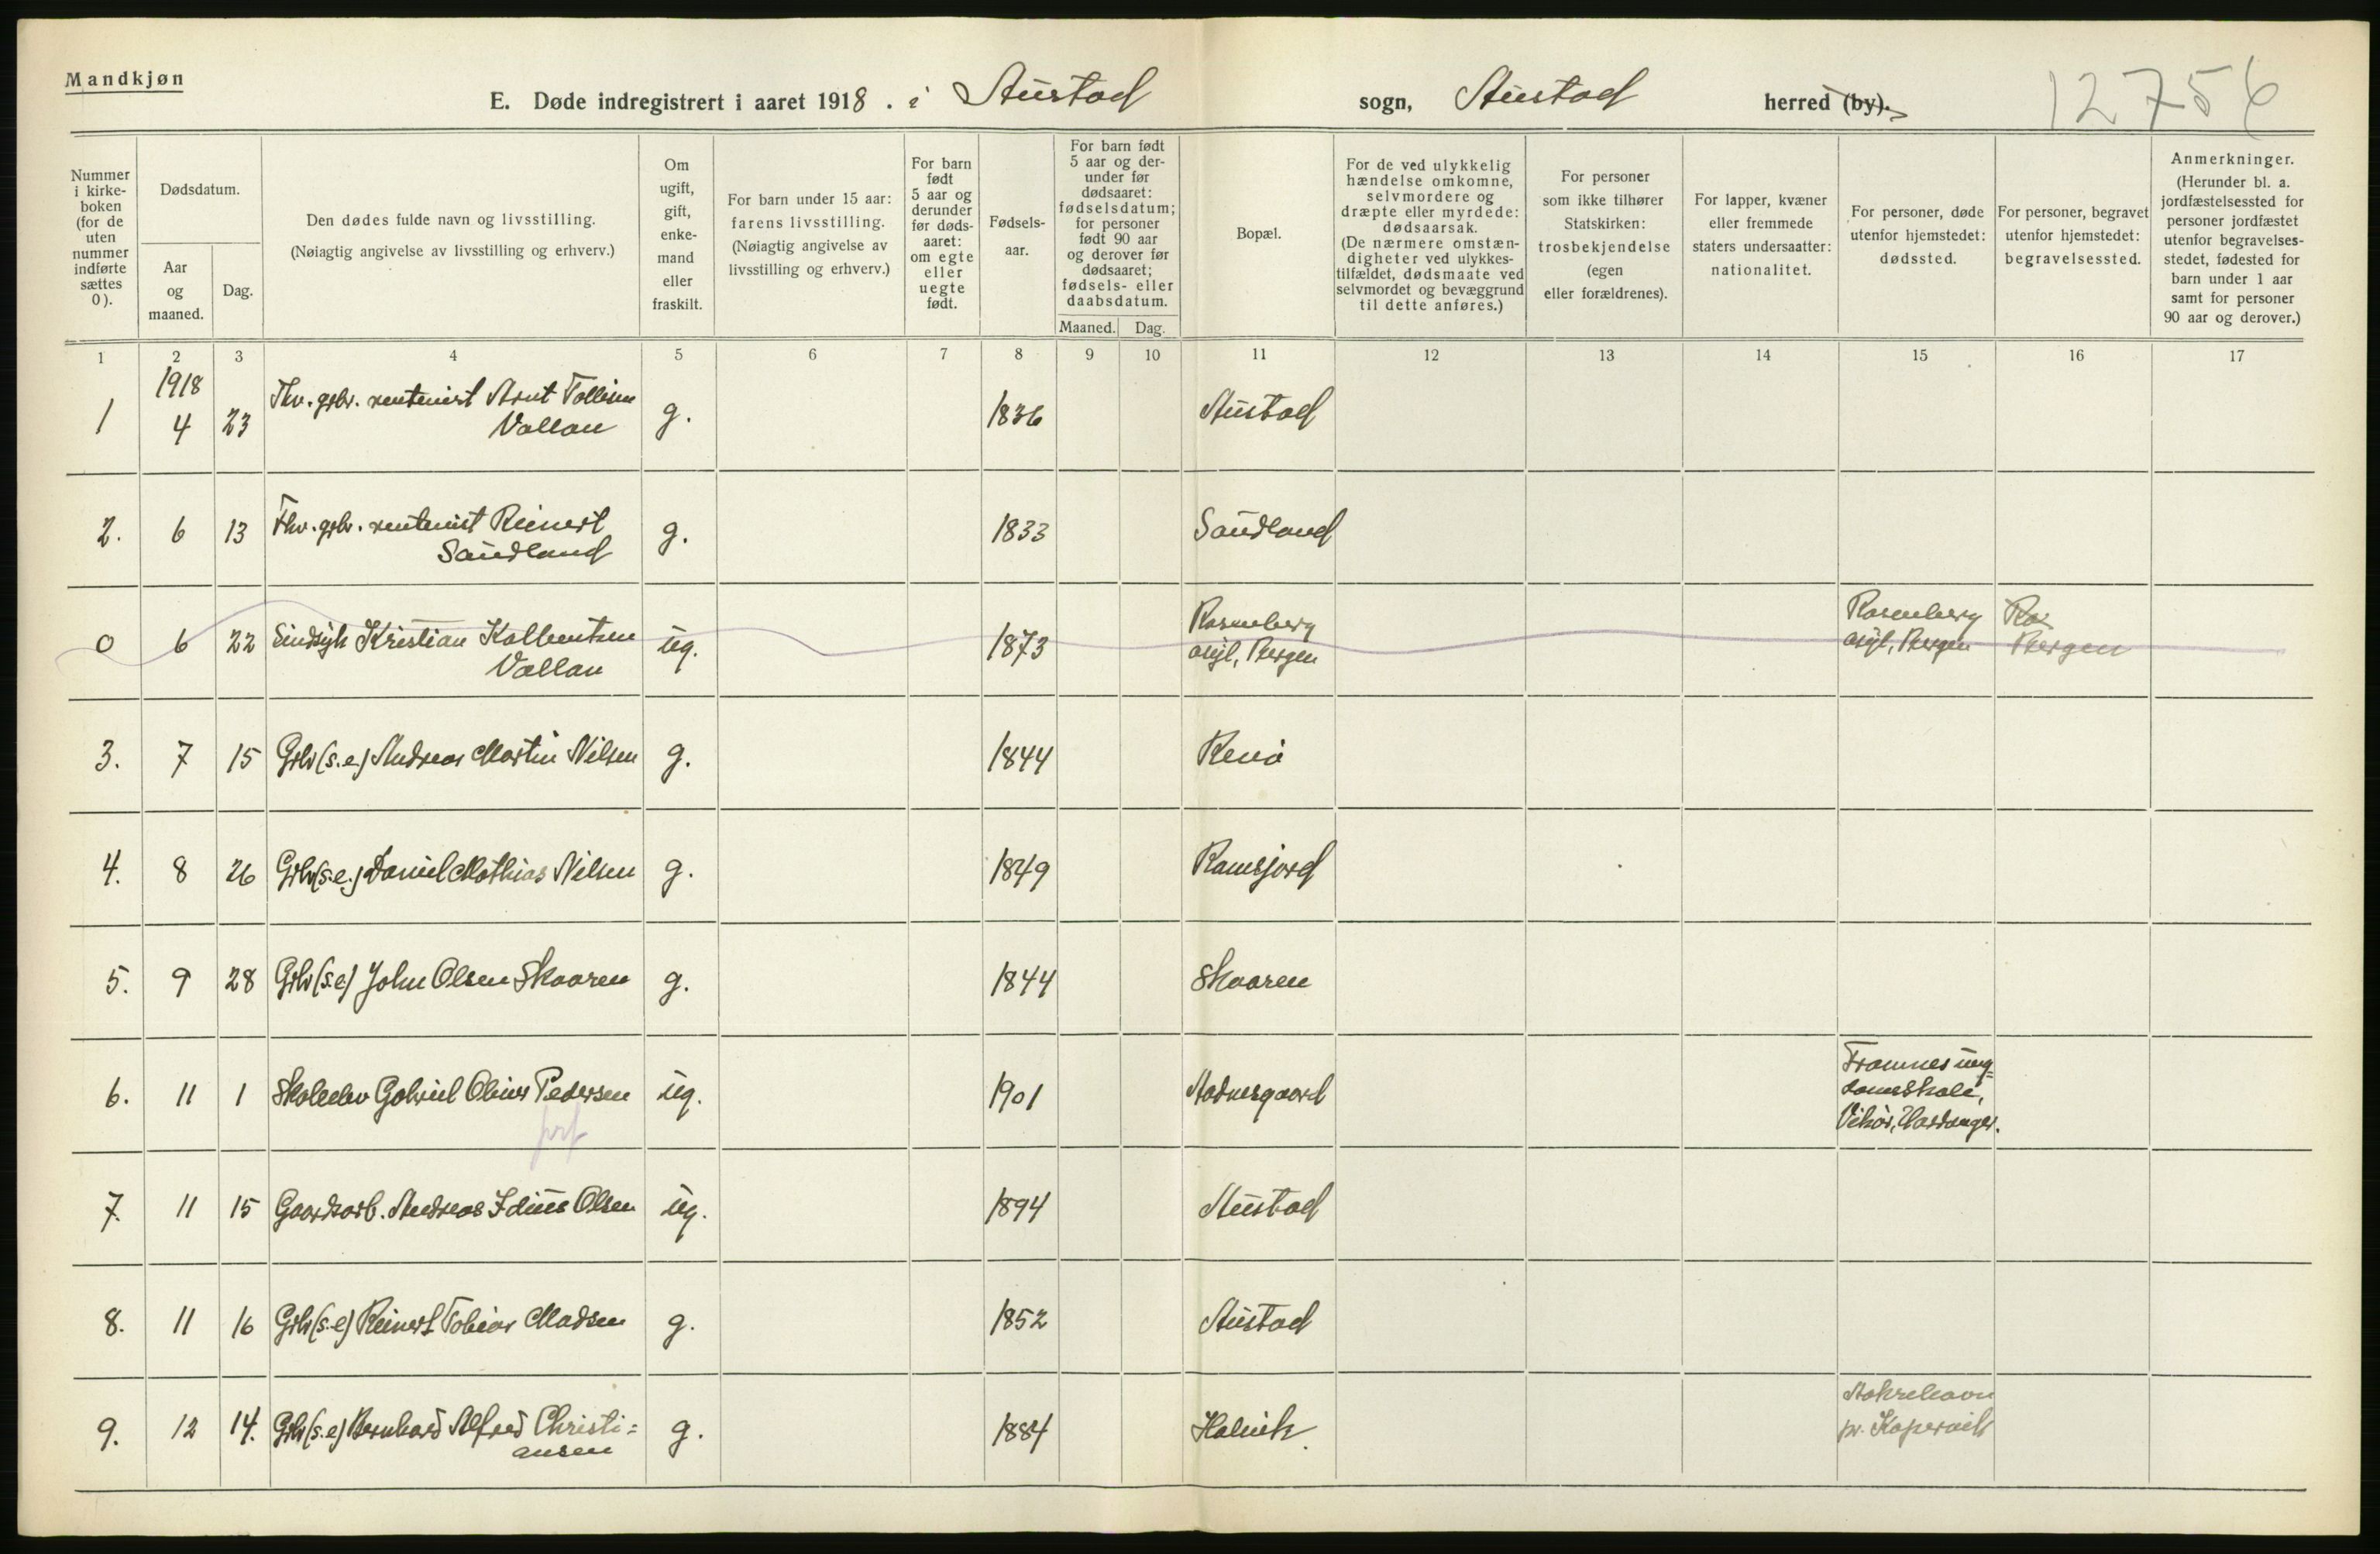 Mandkjøn
E. Døde indregistrert i aaret 1918. i Austad sogn, Austad herred (by).
12756
Nummer i kirke- boken (for de uten nummer indførte sættes 0).
Dødsdatum.
Aar og maaned.
Dag.
Den dødes fulde navn og livsstilling.
(Nøiagtig angivelse av livsstilling og erhverv.)
Om ugift, gift, enke- mand eller fraskilt.
For barn under 15 aar: farens livsstilling.
(Nøiagtig angivelse av livsstilling og erhverv.)
For barn født 5 aar og derunder før døds- aaret: om egte eller uegte født.
Fødsels- aar.
For barn født 5 aar og der- under før dødsaaret: fødselsdatum; for personer født 90 aar og derover før dødsaaret; fødsels- eller daabsdatum.
Maaned. Dag.
Bopæl.
For de ved ulykkelig hændelse omkomne, selvmordere og dræpte eller myrdede: dødsaarsak.
(De nærmere omstæn- digheter ved ulykkes- tilfældet, dødsmaate ved selvmordet og bevæggrund til dette anføres.)
For personer som ikke tilhører Statskirken: trosbekjendelse (egen eller forældrenes).
For lapper, kvæner eller fremmede staters undersaatter: nationalitet.
For personer, døde utenfor hjemstedet: dødssted.
For personer, begravet utenfor hjemstedet: begravelsessted.
Anmerkninger.
(Herunder bl. a. jordfæstelsessted for personer jordfæstet utenfor begravelses- stedet, fødested for barn under 1 aar samt for personer 90 aar og derover.)
1 2 3 4 5 6 7 8 9 10 11 12 13 14 15 16 17
1918
1 4 23 Fhv. grbr. rentenist Arnt Tollisen g. 1836 Austad
Vollan
2. 6 13 Fhv. grbr. rentenist Reinert g. 1833 Saudland
Saudland
0 6 22 Sindsyk Kristian Kolbentsen ug. 1873 Rosenberg asyl, Bergen Rosenberg asyl, Bergen Ro Bergen
Vollan
3. 7 15 Grbr (s.e) Andreas Martin Nilsen g. 1844 Renö
4. 8 26 Grbr (s.e.) Daniel Mathias Nilsen g. 1849 Ramsjord
5. 9 28 Grbr (s.e) John Olsen Skaaren g. 1844 Skaaren
6. 11 1 Skoleelev Gabriel Olius Pedersen ug. 1901 Aadnesgaard Framnes ung=
domsskole,
Vikör, Hardanger.
7. 11 15 Gaardsarb. Andreas Idius Olsen ug. 1894 Austad
8. 11 16 Grbr (s.e) Reinert Tobias Madsen g. 1852 Austad
9. 12 14. Grbr (s.e) Bernhard Alfred Christi= g. 1884 Halvik. Aakrehavn
ansen pr. Kopervik